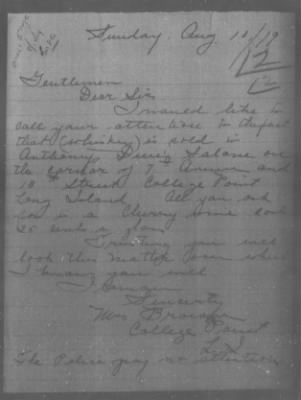 Sunday. Aug 10/19
12
Gentlemen
Dear Sir
I would like to
call your attention to the fact
that (Whiskey) is sold in
Anthony Salone on
the cornor of 7th Avenue and
10th Street College Point
Long Island All you ask
for is a Cherry wine cost
25 cents a glass
Trusting you will
look this matter over which
I know you will
I Remain
Sincerty
Mrs Brown
College Point
L I
The Police pay no attention